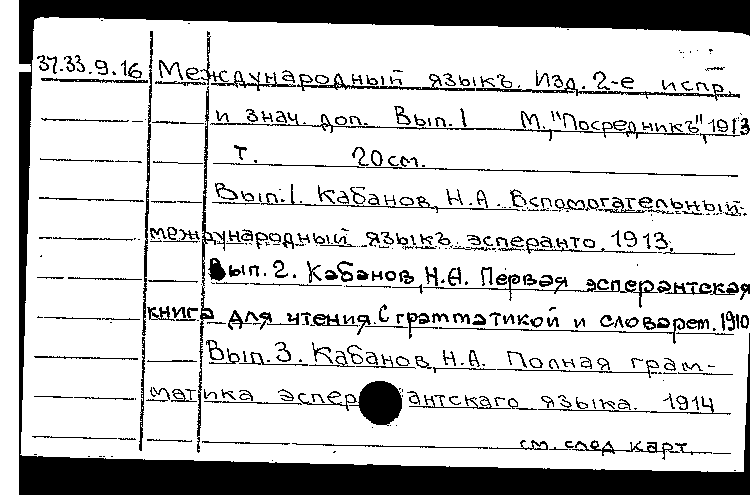 37.33.9.16 Международный языкъ. Изд. 2-е, испр.
и знач. доп. Вып. 1 М., "Посредникъ", 1913
т. 20см.
Вып. 1. Кабанов, Н.А. Вспомогательный
международный языкъ эсперанто. 1913.
Вып. 2. Кабанов, Н.А. Первая эсперантская
книга для чтения. С грамматикой и словарем. 1910
Вып. 3. Кабанов, Н.А. Полная грам-
матика эсперантскаго языка. 1914
см. след карт.